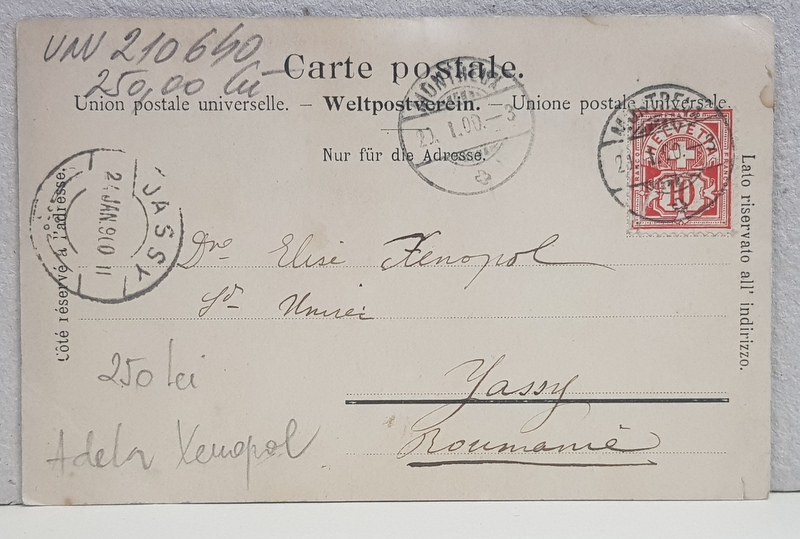 UNV 210640
250,00 lei
Carte postale.
Union postale universelle. — Weltpostverein. — Unione postale universale.
Nur für die Adresse.
MONTREUX
20. I.00.—3
MONTREUX
HELVETIA
FRANCO
FRANCO
10
JASSY
24 JAN 900 11
Côté réservé à l'adresse.
Lato riservato all' indirizzo.
Dne Elise Xenopol
Sd Unirei
Yassy
Roumanie
250 lei
Adela Xenopol